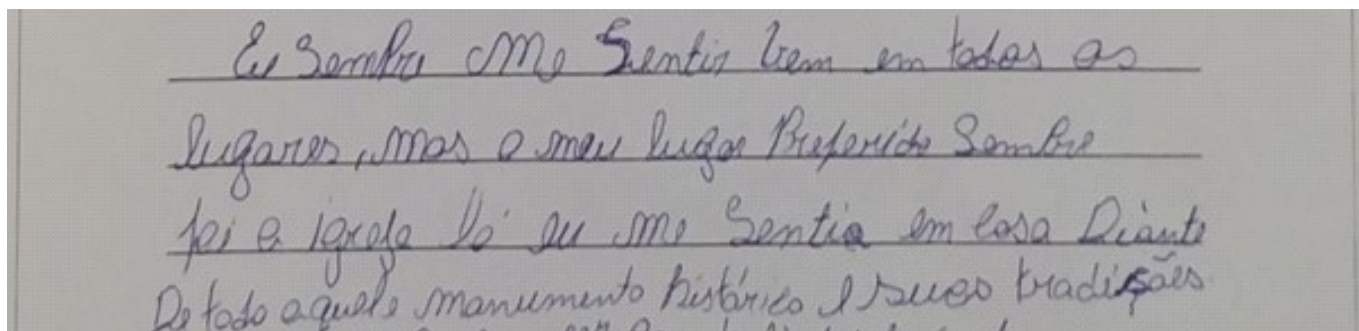 Eu Sembre me Sentir bem em todos os
lugares, mas o meu lugar Preferido Sembre
foi a igreja lá eu me Sentia em casa Diante
De todo aquele manumento histórico e suas tradições.